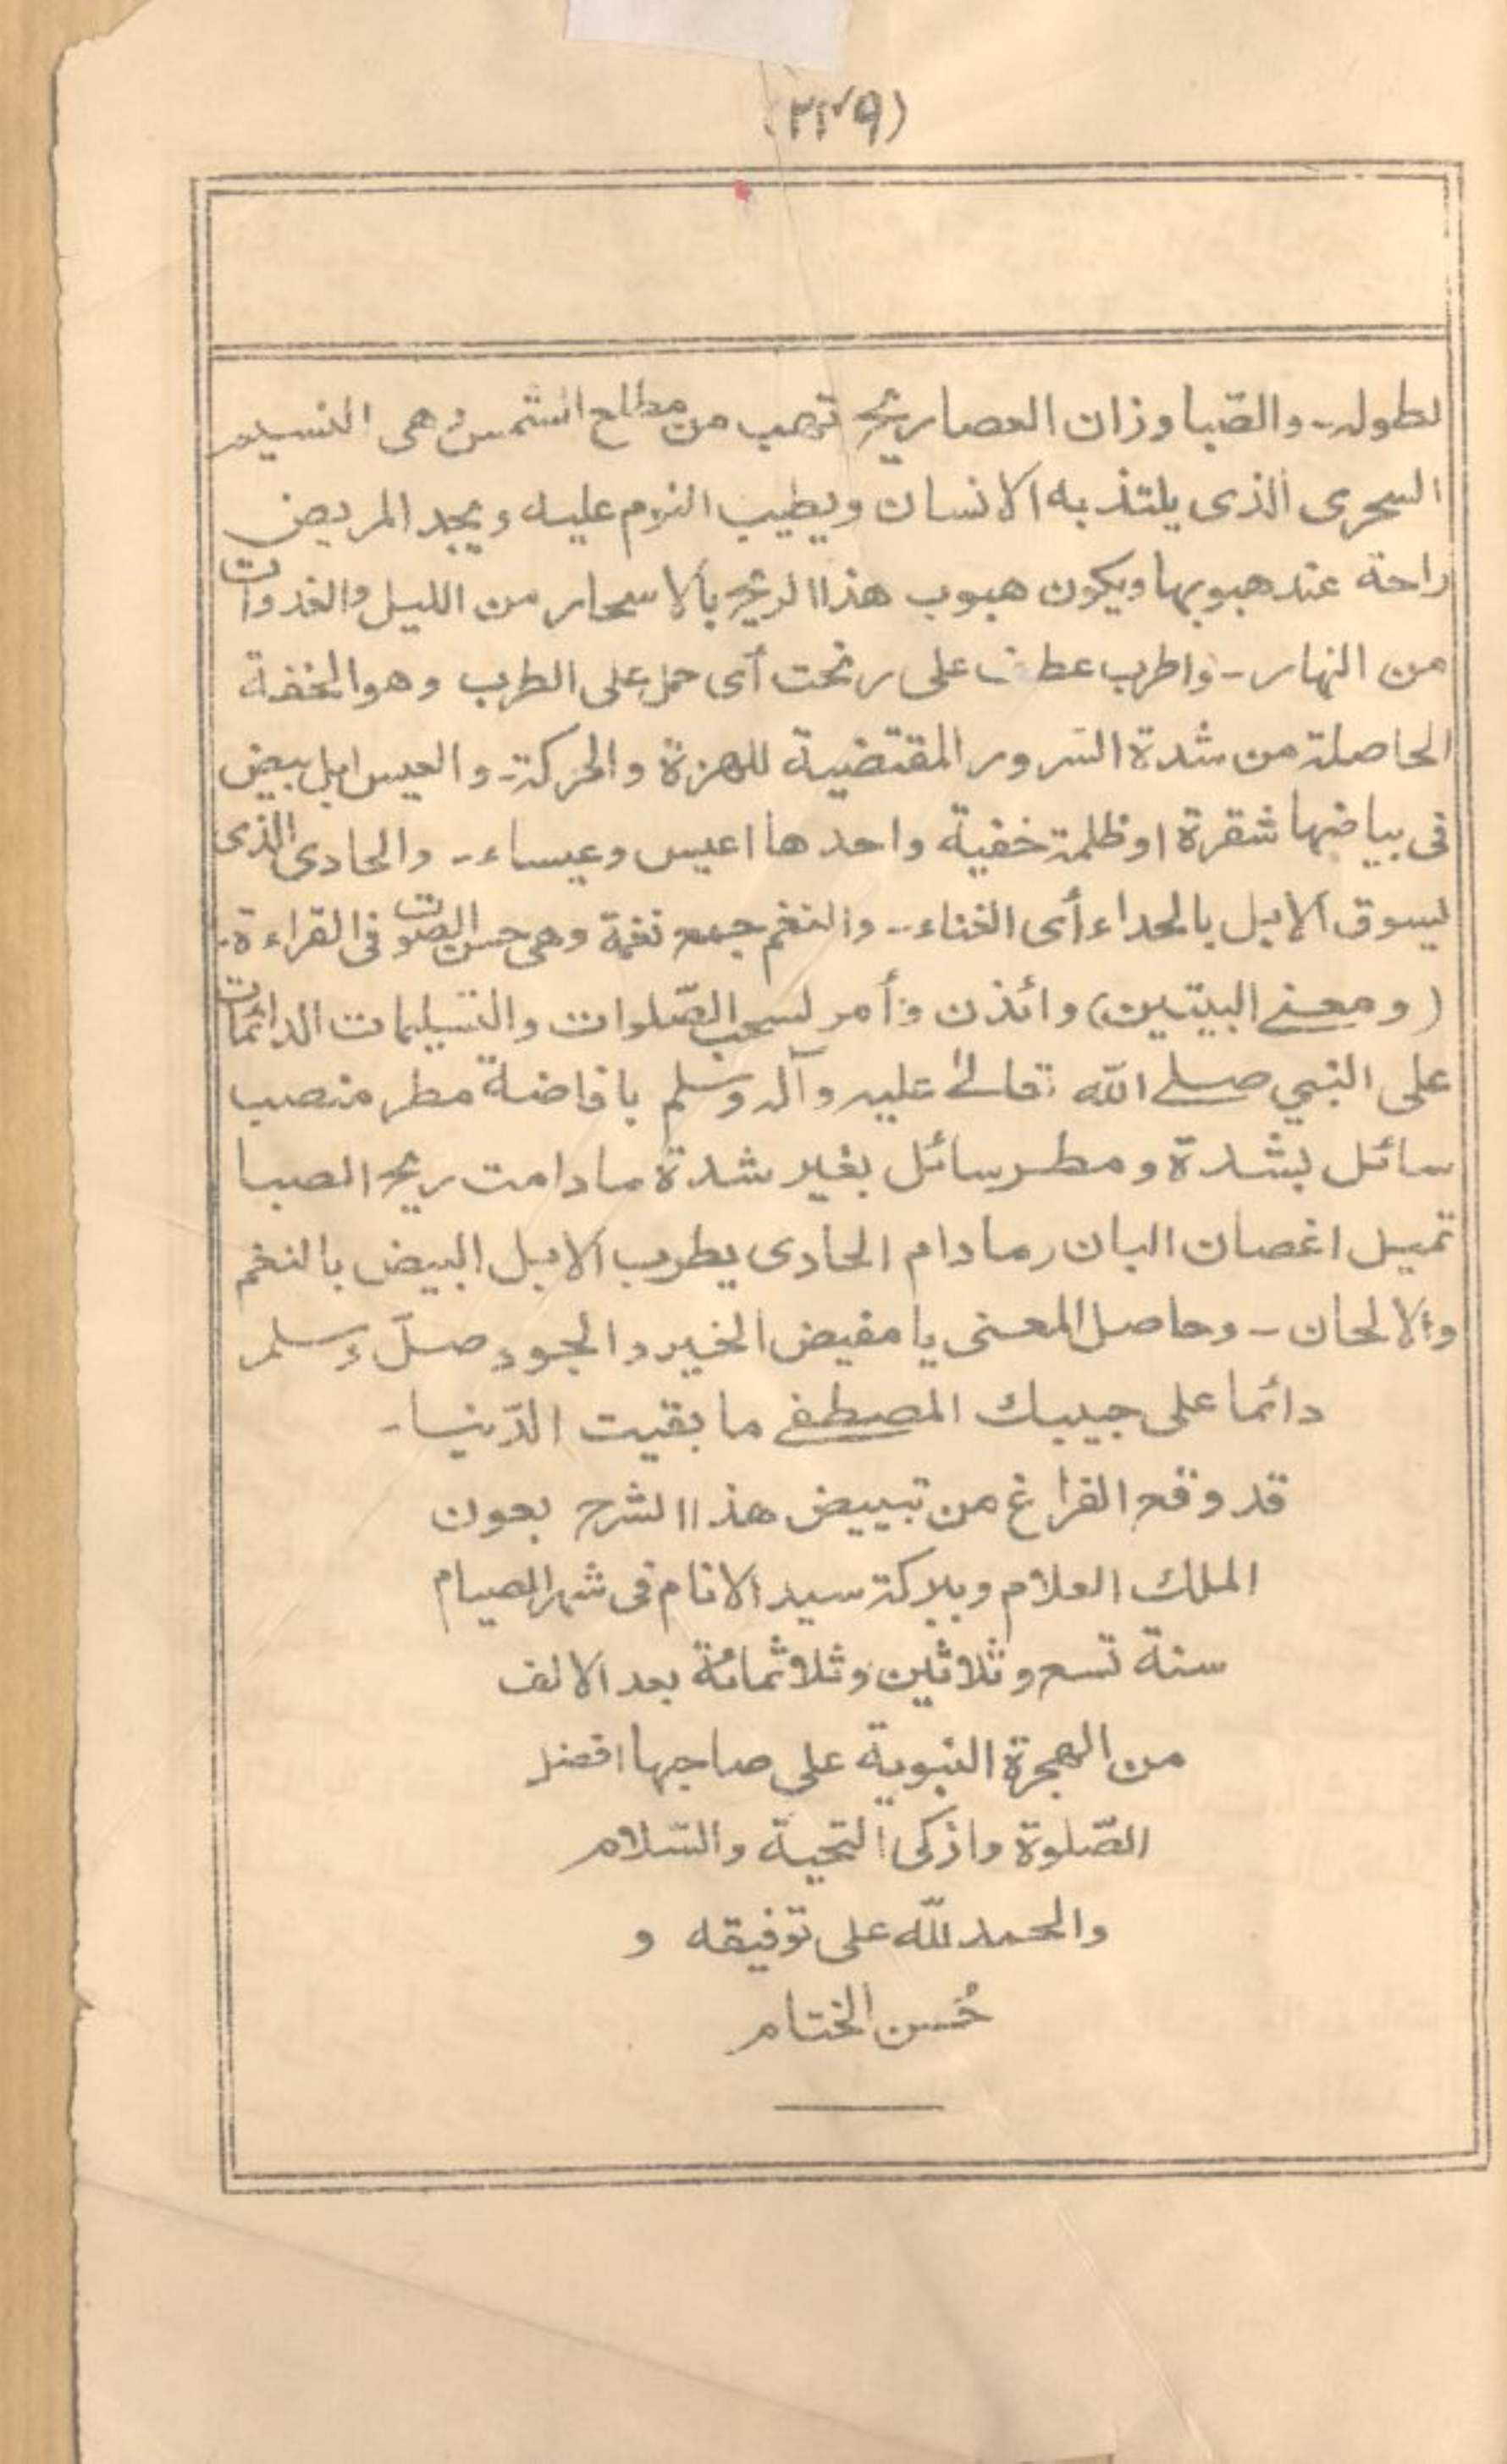 (٢٣٩)
لطوله۔ والصّبا وزان العصا ريح تهب من مطلع الشمس وهى النسيم
السحرى الذى يلتذ به الانسان ويطيب النوم عليه ويجد المريض
راحة عند هبوبها ويكون هبوب هذا الريح بالاسحار من الليل والغدوات
من النهار۔ واطرب عطف على رنحت أى حمل على الطرب وهو الخفة
الحاصلة من شدة السّرور المقتضية للهزة والحركة۔ والعيس ابل بيض
فى بياضها شقرة او ظلمة خفية واحدها اعيس وعيساء۔ والحادى الذى
يسوق الابل بالحداء أى الغناء۔ والنغم جمع نغمة وهى حسن الصوت فى القراءة۔
(ومعنے البيتين) وائذن وأمر لسحب الصّلوات والتسليمات الدائمات
على النبي صلے الله تعالےٰ عليه وآله وسلم بافاضة مطر منصب
سائل بشدة ومطر سائل بغير شدة مادامت ريح الصبا
تميل اغصان البان ومادام الحادى يطرب الابل البيض بالنغم
والالحان۔ وحاصل المعنى يا مفيض الخير والجود صلّ وسلم
دائما على حبيبك المصطفے ما بقيت الدّنيا۔
قد وقع الفراغ من تبييض هذا الشرح بعون
الملك العلام وببركة سيد الانام فى شهر الصيام
سنة تسع وثلاثين وثلاثمائة بعد الالف
من الهجرة النبوية على صاحبها افضل
الصّلوة وازكى التحية والسّلام
والحمد لله على توفيقه و
حُسن الختام